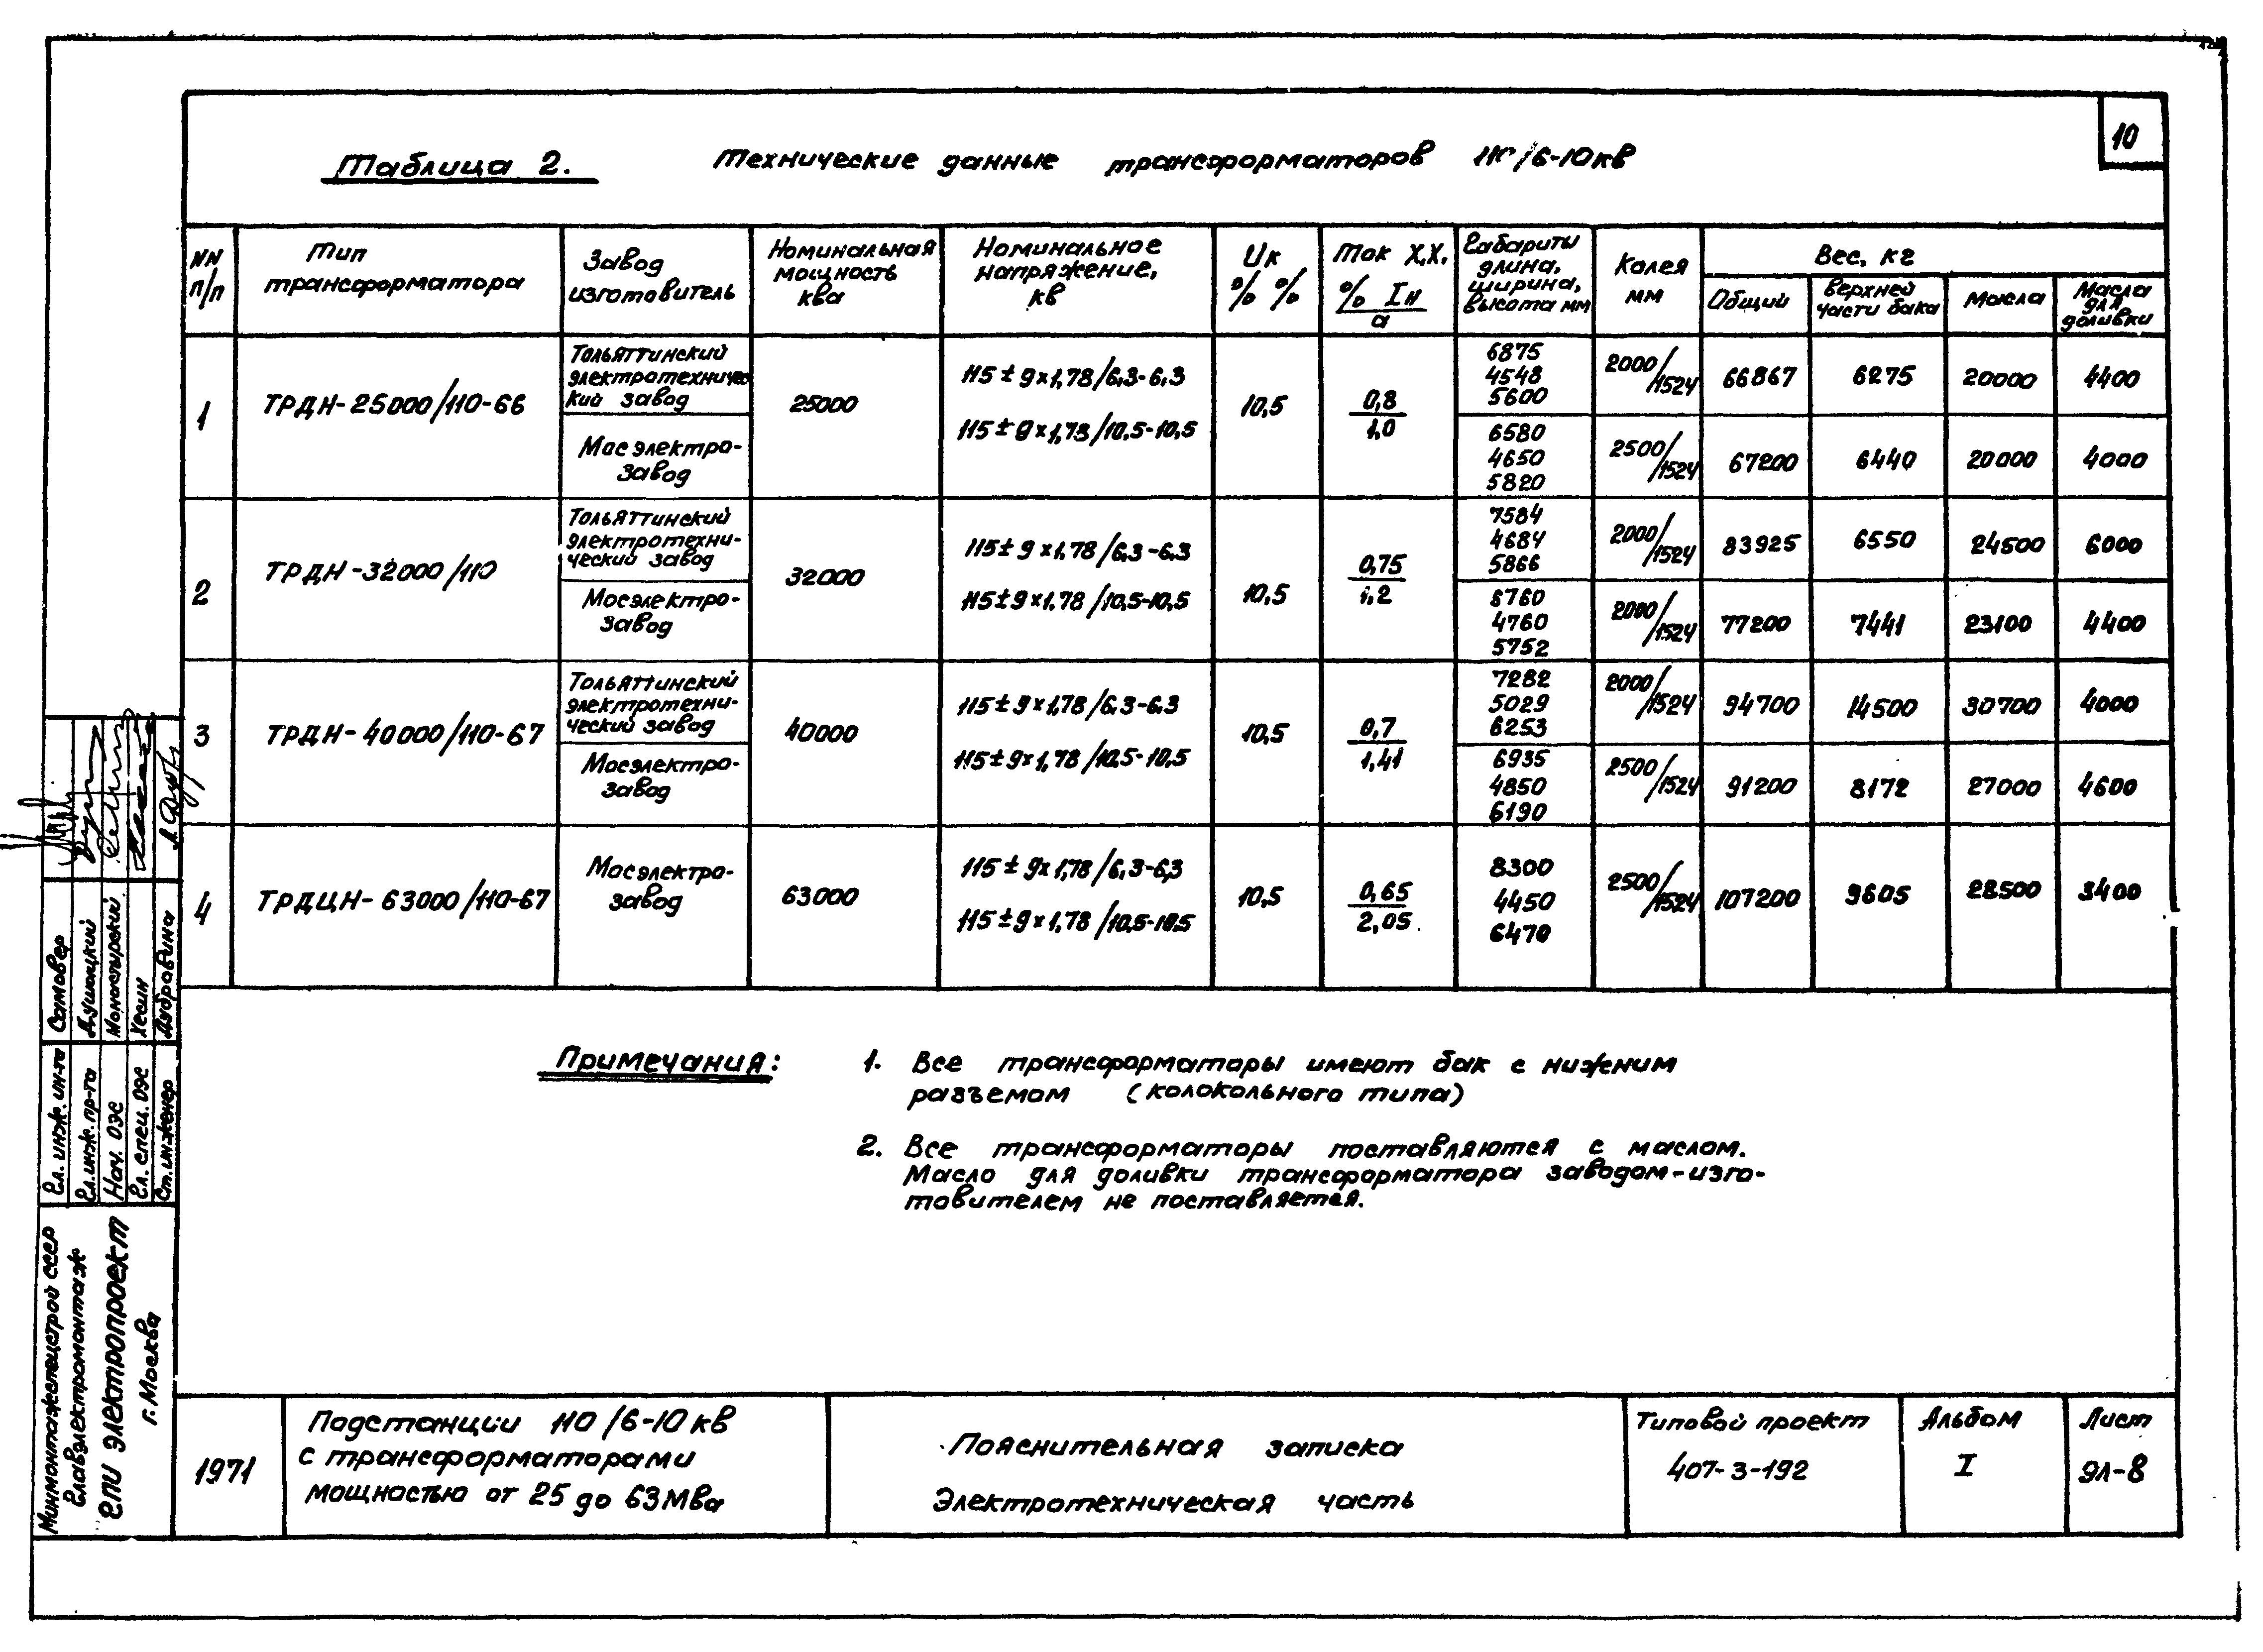 10
Таблица 2. Технические данные трансформаторов 110/6-10кв
NN п/п
Тип трансформатора
Завод изготовитель
Номинальная мощность ква
Номинальное напряжение, кв
Uк % %
Ток Х.Х. % Iн / а
Габариты длина, ширина, высота мм
Колея мм
Вес, кг
Общий
Верхней части бака
Масла
Масла для доливки
1
ТРДН-25000/110-66
Тольяттинский
электротехничес
кий завод
25000
115±9х1,78/6,3-6,3
115±9х1,78/10,5-10,5
10,5
0,8
1,0
6875
4548
5600
2000/1524
66867
6275
20000
4400
Мосэлектро-
завод
6580
4650
5820
2500/1524
67200
6440
20000
4000
2
ТРДН-32000/110
Тольяттинский
электротехни-
ческий завод
32000
115±9х1,78/6,3-6,3
115±9х1,78/10,5-10,5
10,5
0,75
1,2
7584
4684
5866
2000/1524
83925
6550
24500
6000
Мосэлектро-
завод
6760
4760
5752
2000/1524
77200
7441
23100
4400
3
ТРДН-40000/110-67
Тольяттинский
электротехни-
ческий завод
40000
115±9х1,78/6,3-6,3
115±9х1,78/10,5-10,5
10,5
0,7
1,41
7282
5029
6253
2000/1524
94700
14500
30700
4000
Мосэлектро-
завод
6935
4850
6190
2500/1524
91200
8172
27000
4600
4
ТРДЦН-63000/110-67
Мосэлектро-
завод
63000
115±9х1,78/6,3-6,3
115±9х1,78/10,5-10,5
10,5
0,65
2,05
8300
4450
6470
2500/1524
107200
9605
28500
3400
Примечания:
1. Все трансформаторы имеют бак с нижним
разъемом (колокольного типа)
2. Все трансформаторы поставляются с маслом.
Масло для доливки трансформатора заводом-изго-
товителем не поставляется.
Гл. инж. ин-та Самовер
Гл. инж. пр-та Душацкий
Нач. ОЭС Монастырский
Гл. спец. ОЭС Хесин
Ст. инженер Дубровина
Минмонтажспецстрой СССР
Главэлектромонтаж
ГПИ Электропроект
г. Москва
1971
Подстанции 110/6-10 кв
с трансформаторами
мощностью от 25 до 63 Мва
Пояснительная записка
Электротехническая часть
Типовой проект
407-3-192
Альбом
I
Лист
ЭЛ-8